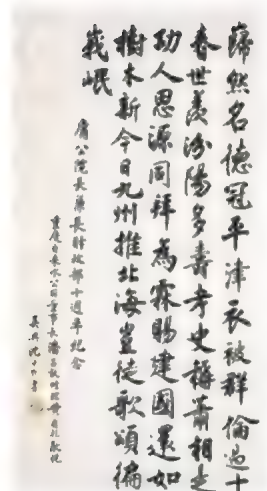 蔼然名德冠平津衣被群倫過十
春世羨汾陽多壽考史稱蕭相是
功人思源同拜為霖賜建國還如
樹木新今日九州推北海豈徒歌頌徧
峩岷
庸公院長兼長財政部十週年紀念
重慶自來水公司董事長潘昌猷
吳興沈